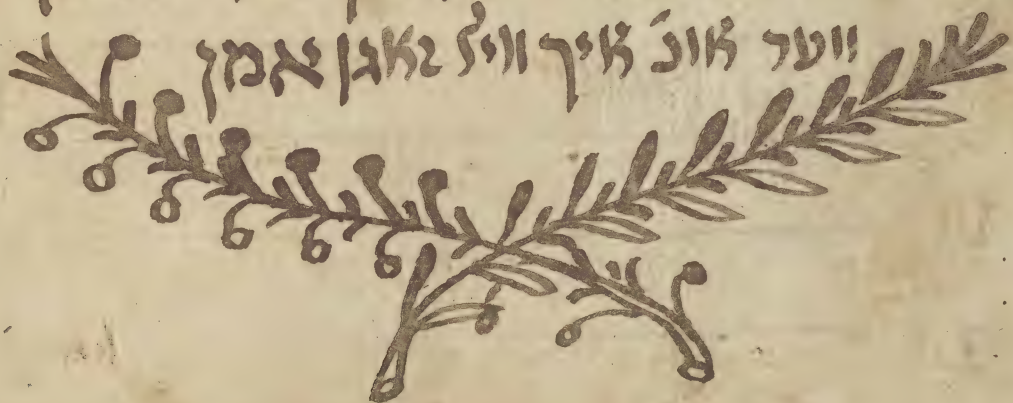 ווער אונ' איך וויל זאגן אמן